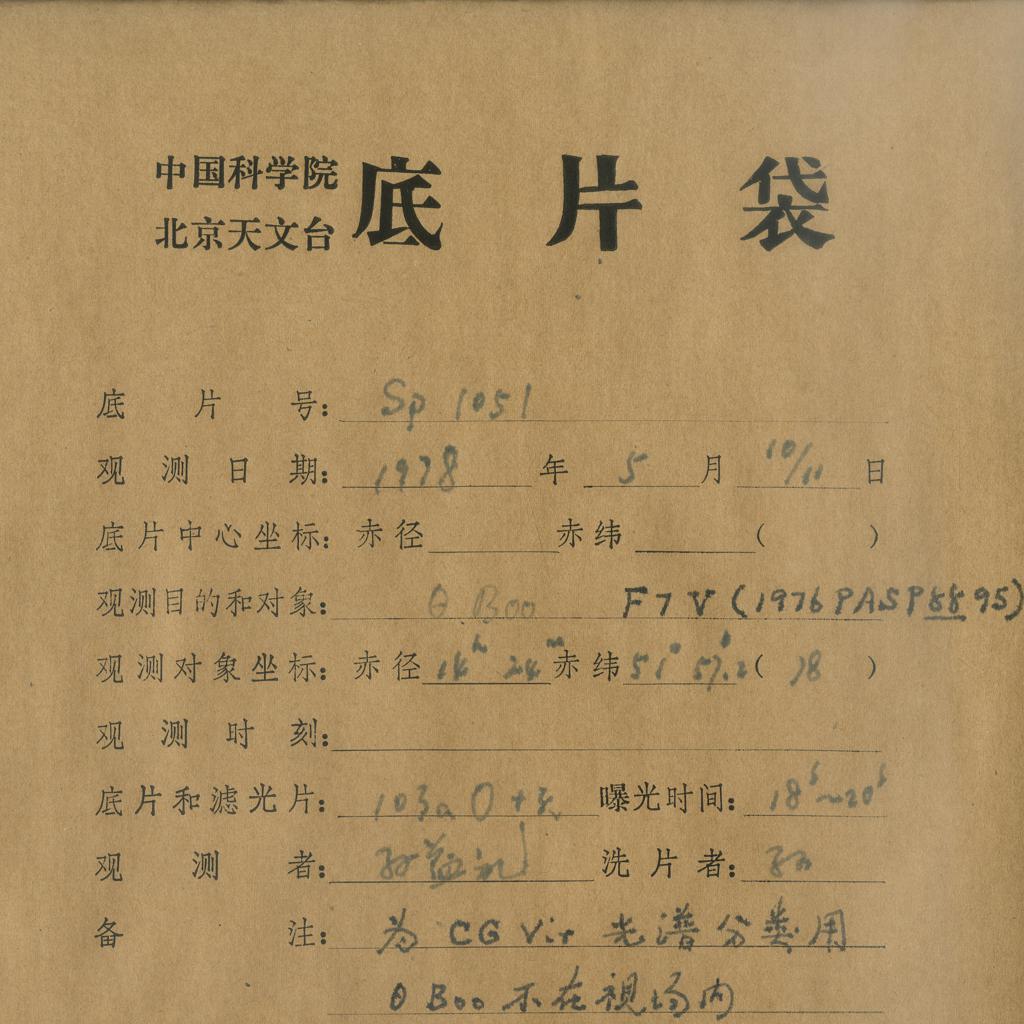 中国科学院
北京天文台 底片袋
底片号: Sp 1051
观测日期: 1978 年 5 月 10/11 日
底片中心坐标: 赤径 赤纬 ( )
观测目的和对象: θ Boo F7 V (1976 PASP 88 95)
观测对象坐标: 赤径 14h 24m 赤纬 51° 57.2 ( 78 )
观测时刻:
底片和滤光片: 103a O + 无 曝光时间: 18s~20s
观测者: 孙益礼 洗片者: 孙
备注: 为 CG Vir 光谱分类用
θ Boo 不在视场内